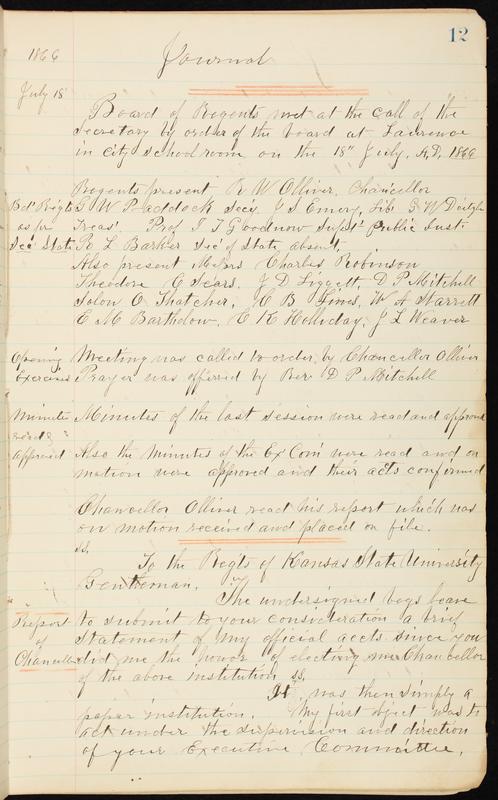 12
1866
Journal
July 18
Board of Regents met at the call of the
Secretary by order of the board at Lawrence
in city school room on the 18" July, A.D. 1866
Regents present R W Olliver, Chancellor
G W Paddock Sec'y J S Emery, Lib. G W
as pr Treas' Prof I T Goodnow Supt Public Inst.
Sec State R L Barker Sec' of State absent
Also present Charles Robinson
Theodore C Sears, J D Liggett, D P Mitchell
Solon O Thatcher, C B Lines, W A Starrett
E M Bartholow, C K Holliday, J L Weaver
Opening Meeting was called to order by Chancellor Olliver
Exercises Prayer was offered by Rev D P Mitchell
Minute Minutes of the last session were read and approved
read &
approved Also the Minutes of the Ex Com' were read and on
motion were approved and their acts confirmed
Chancellor Olliver read his report which was
on motion received and placed on file.
ss.
To the Reg'ts of Kansas State University
Gentleman,
The undersigned begs leave
Report to submit to your consideration a brief
of statement of my official acts since you
Chancellor did me the honor of electing me Chancellor
of the above institution ss.
It was then simply a
paper institution. My first object was to
act under the supervision and direction
of your Executive Committee,